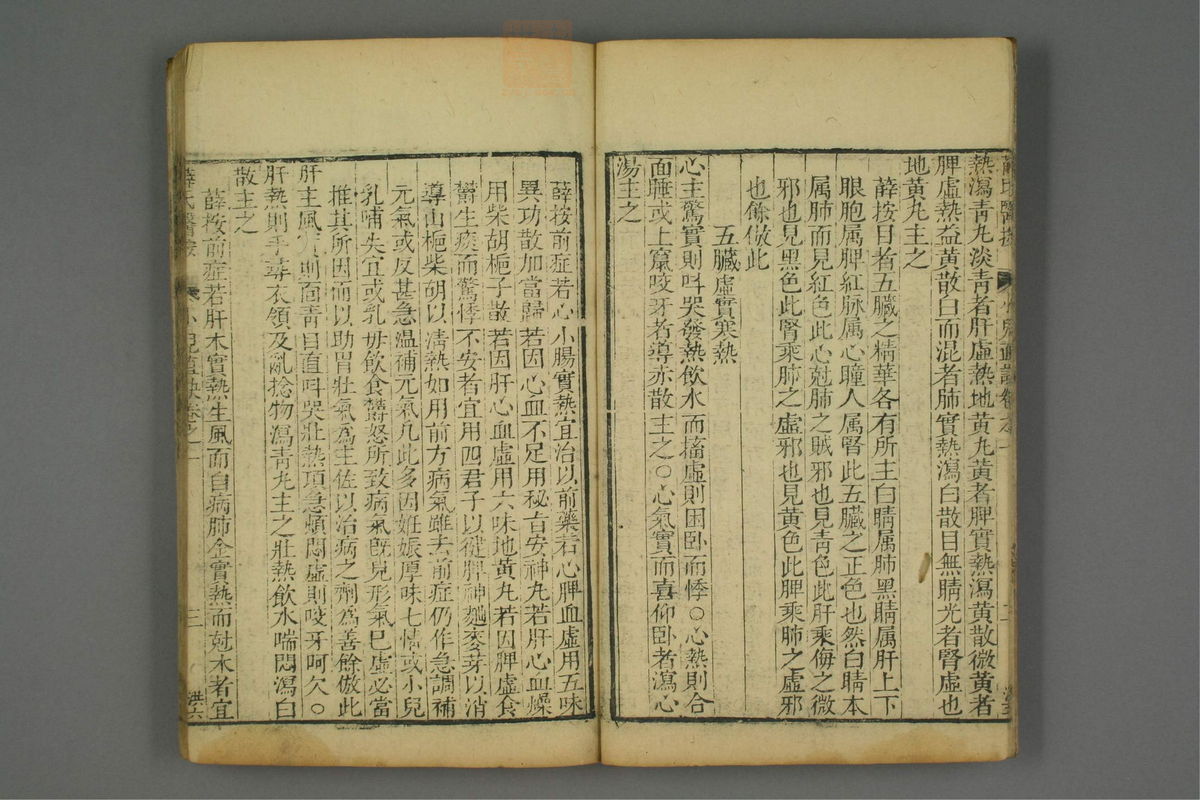 熱瀉青丸淡青者肝虛熱地黃丸黃者脾實熱瀉黃散微黃者
脾虛熱益黃散白而混者肺實熱瀉白散目無睛光者腎虛也
地黃丸主之
薛按目者五臟之精華各有所主白睛属肺黑睛属肝上下
眼胞属脾紅脉属心瞳人属腎此五臟之正色也然白睛本
属肺而見紅色此心尅肺之賊邪也見青色此肝乘侮之微
邪也見黑色此腎乘肺之虛邪也見黃色此脾乘肺之虛邪
也餘倣此
五臟虛實寒熱
心主驚實則呌哭發熱飲水而搐虛則困卧而悸○心熱則合
面睡或上竄咬牙者導赤散主之○心氣實而喜仰卧者瀉心
湯主之
薛按前症若心小腸實熱宜治以前藥若心脾血虛用五味
異功散加當歸若因心血不足用秘旨安神丸若肝心血燥
用柴胡梔子散若因肝心血虛用六味地黃丸若因脾虛食
欝生痰而驚悸不安者宜用四君子以健脾神麯麥芽以消
導山梔柴胡以清熱如用前方病氣雖去前症仍作急調補
元氣或反甚急温補元氣凡此多因妊娠厚味七情或小兒
乳哺失宜或乳母飲食欝怒所致病氣旣見形氣巳虛必當
推其所因而以助胃壯氣為主佐以治病之劑為善餘倣此
肝主風實則面青目直呌哭壯熱項急頻悶虛則咬牙呵欠○
肝熱則手尋衣領及亂捻物瀉青丸主之壯熱飲水喘悶瀉白
散主之
薛按前症若肝木實熱生風而自病肺金實熱而尅木者宜
薛氏醫按 小兒直訣卷之一 三 洪六